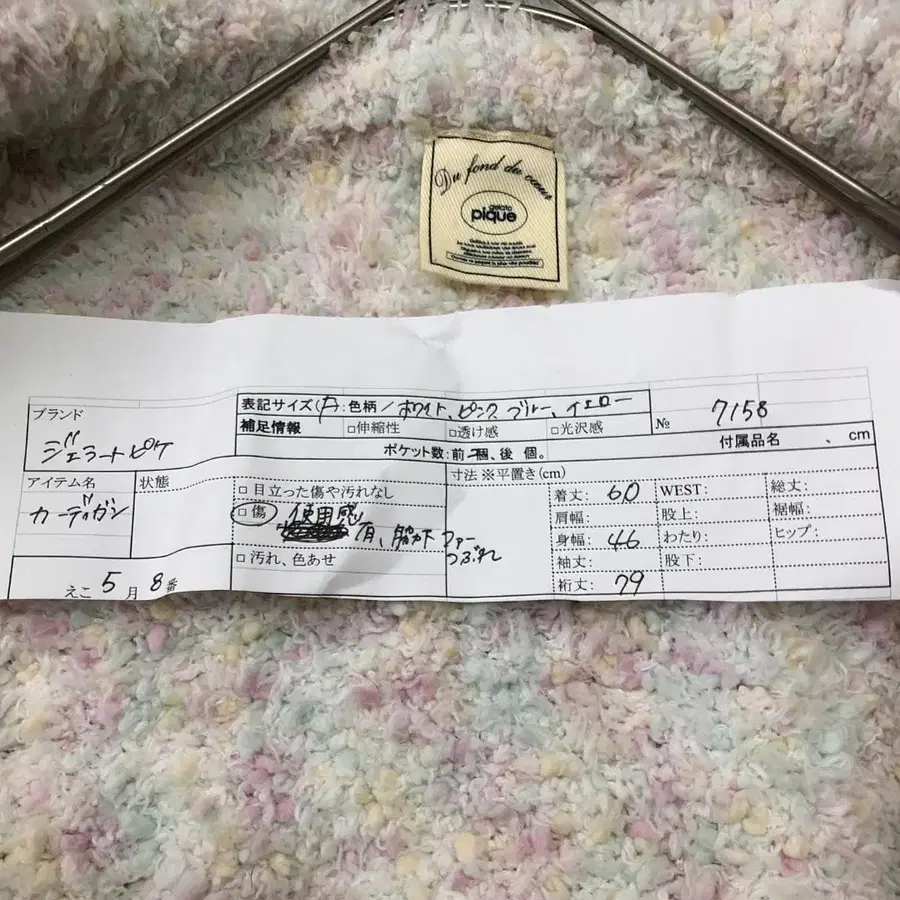 Du fond du cœur
gelato
pique
ブランド
ジェラートピケ
表記サイズ(F):色柄/ホワイト、ピンク ブルー、イエロー
№ 7158
補足情報 □伸縮性 □透け感 □光沢感
付属品名 、 cm
ポケット数:前 個、後 個。
アイテム名
カーディガン
状態
□目立った傷や汚れなし
□傷 使用感
有、脇下ファー
つぶれ
□汚れ、色あせ
寸法 ※平置き(cm)
着丈: 60 WEST: 総丈:
肩幅: 股上: 裾幅:
身幅: 46 わたり: ヒップ:
袖丈: 股下:
裄丈: 79
えこ 5月 8番